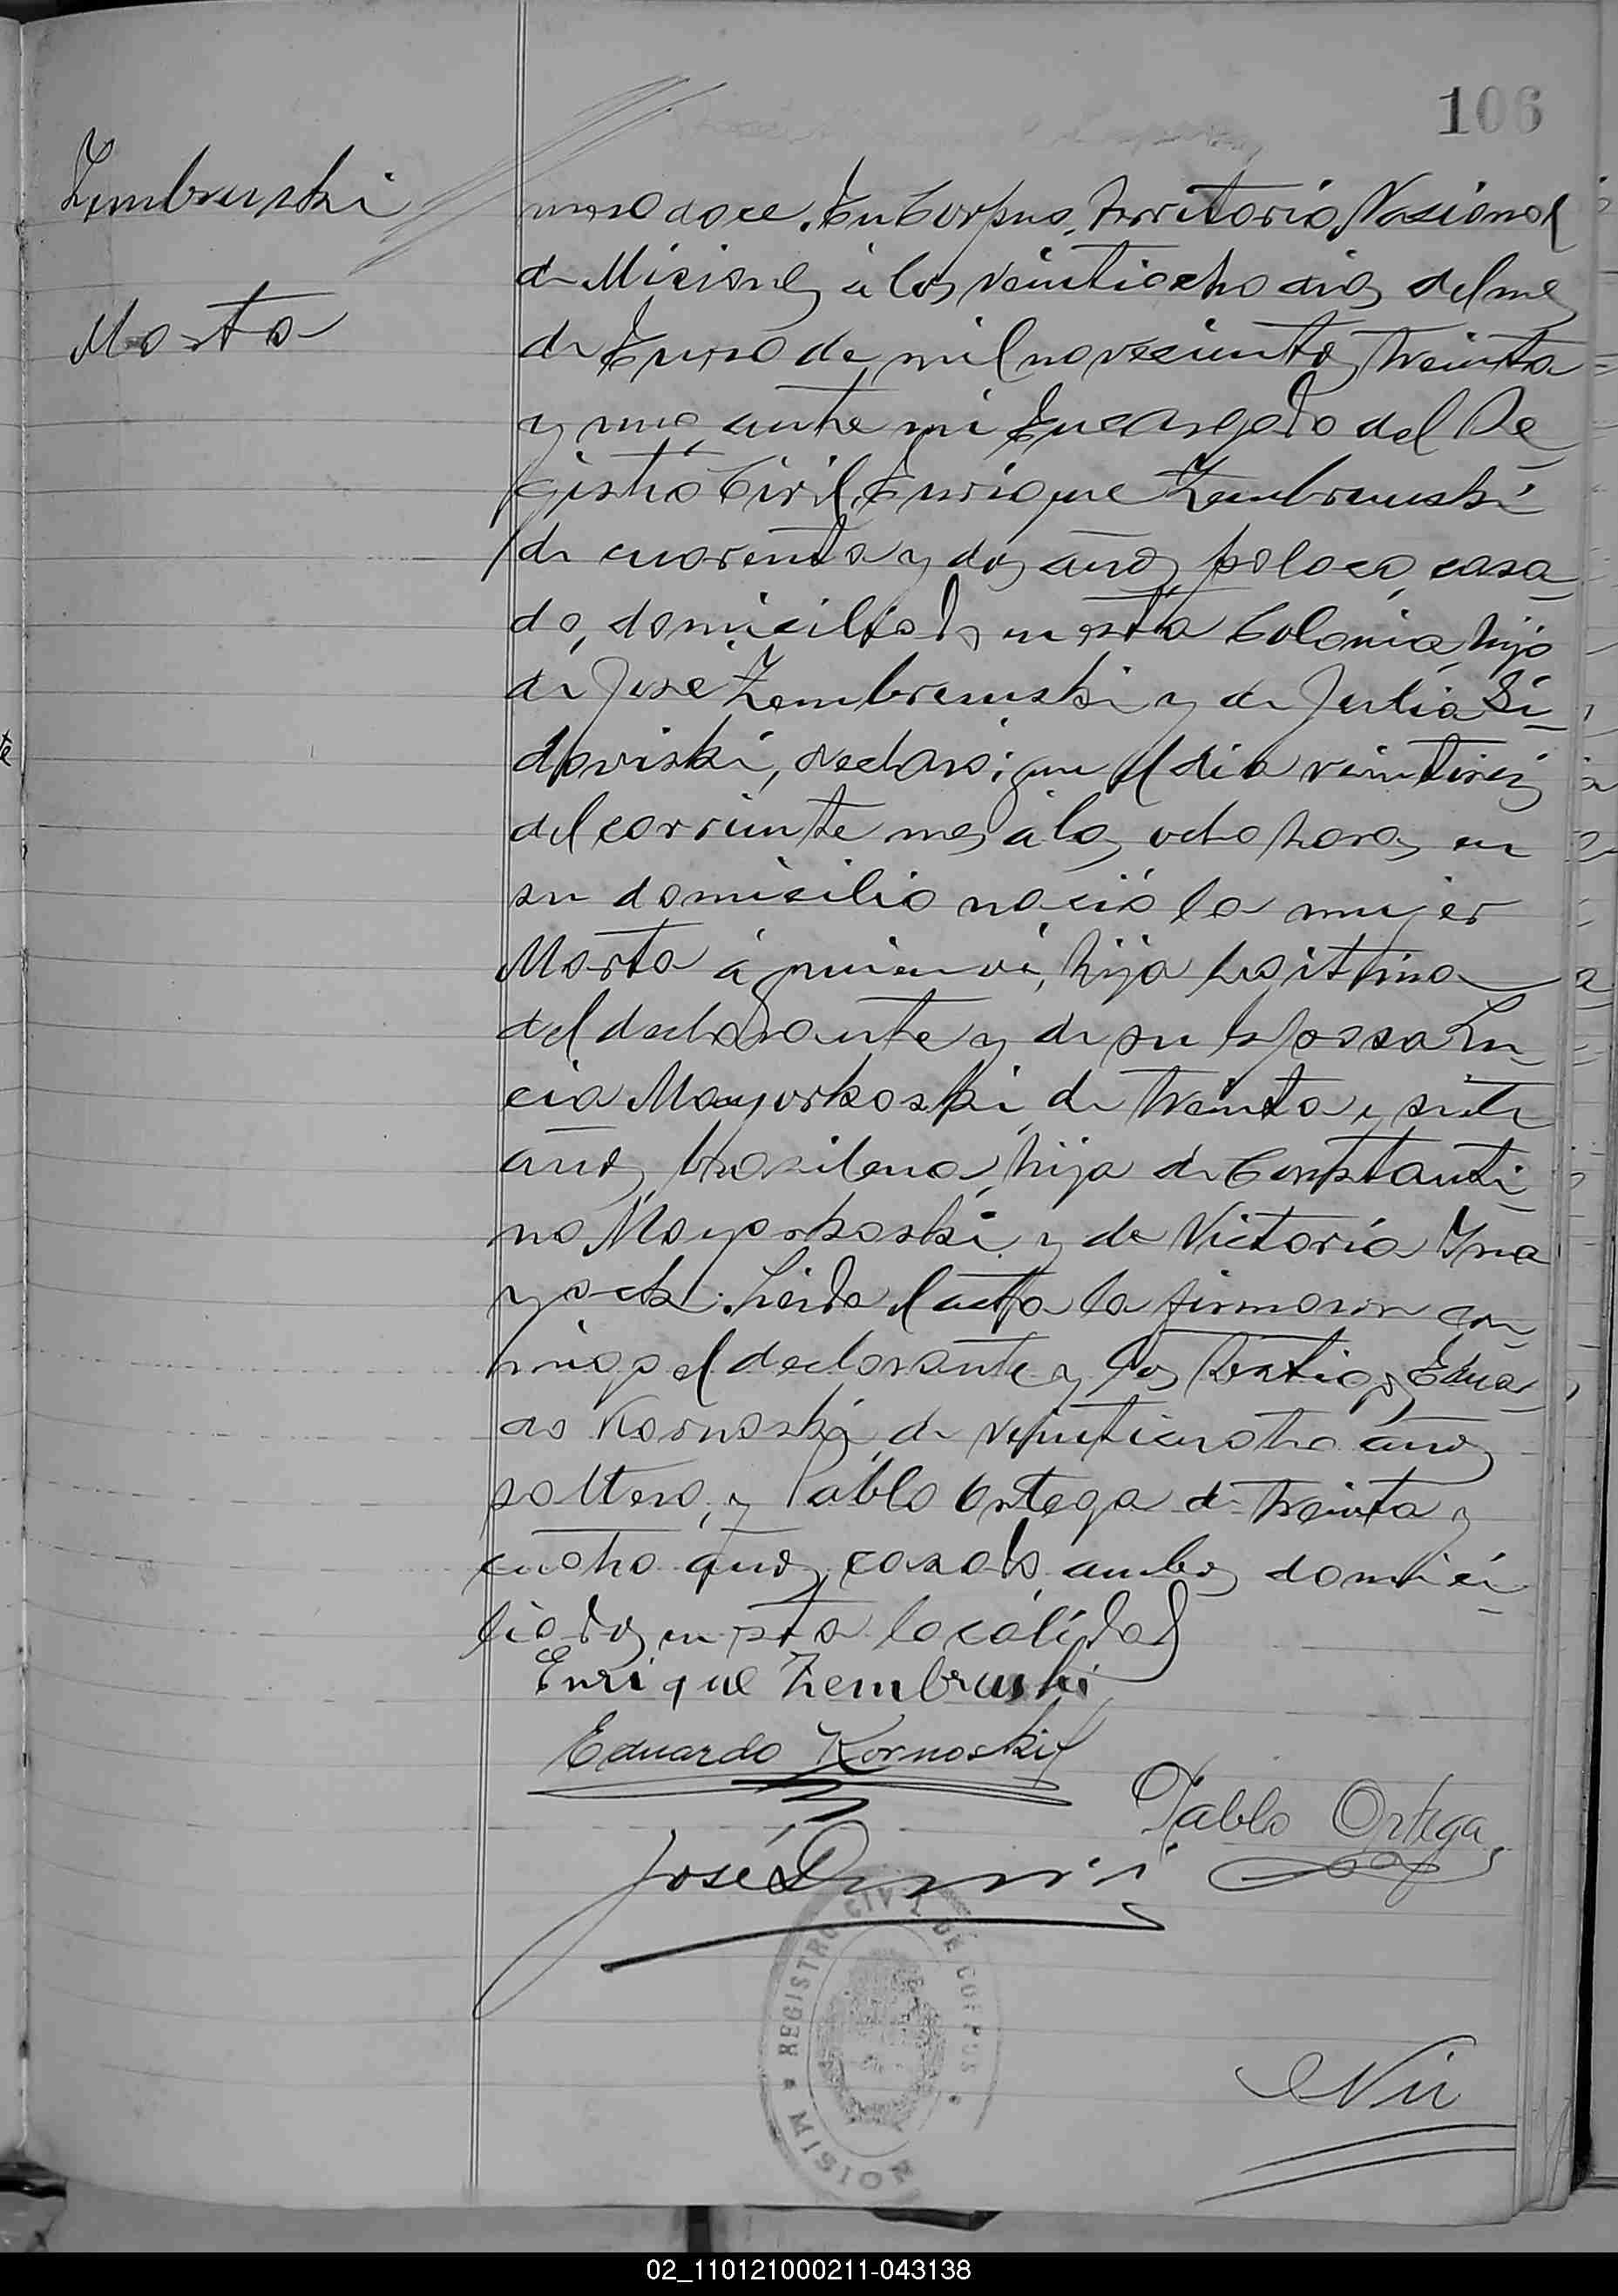 106
Zembruski
Marta
mero doce. En Corpus, Territorio Nacional
de Misiones á los veintiocho dias del mes
de Enero de mil novecientos treinta
y uno, ante mi Encargado del Re
gistro Civil, Enrique Zembruski
de cuarenta y dos años, polaco, casa
do, domiciliado en esta Colonia, hijo
de José Zembruski y de Julia Si
doviski, declaró: que el dia
del corriente mes á las ocho horas en
su domicilio nació la mujer
Marta á quien vi, hija legitima
del declarante y de su Esposa Lu
cia Mayorkoski, de treinta y siete
años, brasilena, hija de Constanti
no Mayorkoski y de Victoria
Leida el acta la firmaron con
migo el declarante y los testigos Eduar
do Kornoski, de veinticuatro años
soltero, y Pablo Ortega de treinta y
cuatro años, casado, ambos domici
liados en esta localidad
Enrique Zembruski
Eduardo Kornoski
Pablo Ortega
José
REGISTRO CIVIL DE CORPUS
MISIONES
02_110121000211-043138